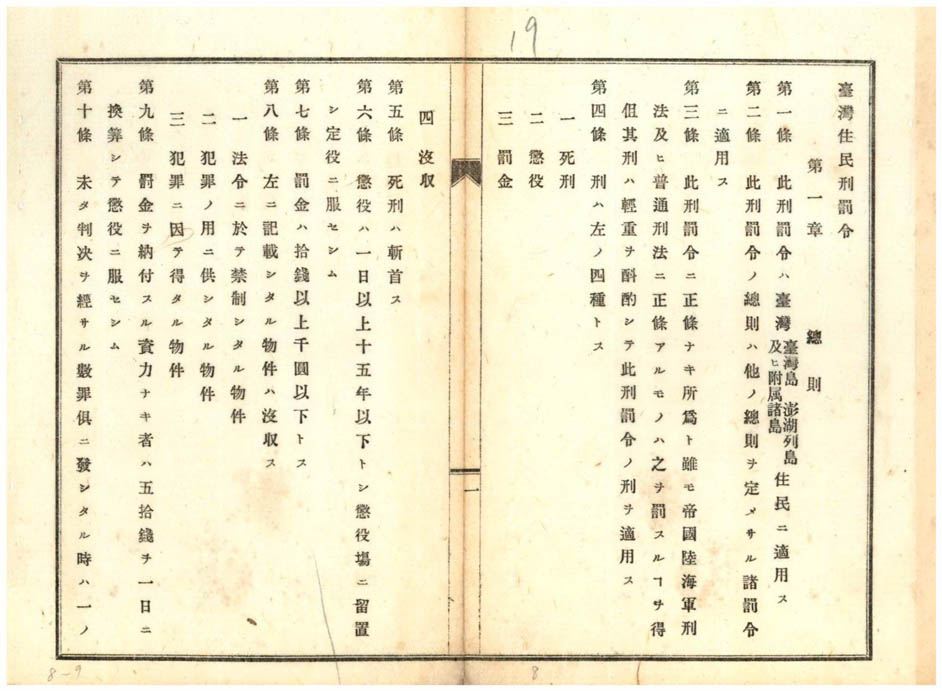 19
臺灣住民刑罰令
第一章 總則
第一條 此刑罰令ハ臺灣 臺灣島 澎湖列島 及ヒ附属諸島 住民ニ適用ス
第二條 此刑罰令ノ總則ハ他ノ總則ヲ定メサル諸罰令
ニ適用ス
第三條 此刑罰令ニ正條ナキ所爲ト雖モ帝國陸海軍刑
法及ヒ普通刑法ニ正條アルモノハ之ヲ罰スルヿヲ得
但其刑ハ輕重ヲ斟酌シテ此刑罰令ノ刑ヲ適用ス
第四條 刑ハ左ノ四種トス
一 死刑
二 懲役
三 罰金
一
四 沒収
第五條 死刑ハ斬首ス
第六條 懲役ハ一日以上十五年以下トシ懲役塲ニ留置
シ定役ニ服セシム
第七條 罰金ハ拾錢以上千圓以下トス
第八條 左ニ記載シタル物件ハ沒収ス
一 法令ニ於テ禁制シタル物件
二 犯罪ノ用ニ供シタル物件
三 犯罪ニ因テ得タル物件
第九條 罰金ヲ納付スル資力ナキ者ハ五拾錢ヲ一日ニ
換算シテ懲役ニ服セシム
第十條 未タ判决ヲ經サル數罪俱ニ發シタル時ハ一ノ
8
8-9